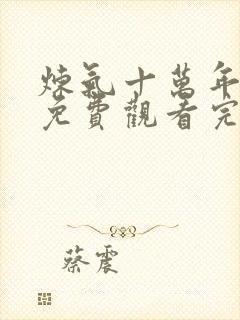 煉氣十萬年
免費觀看完
蔡震